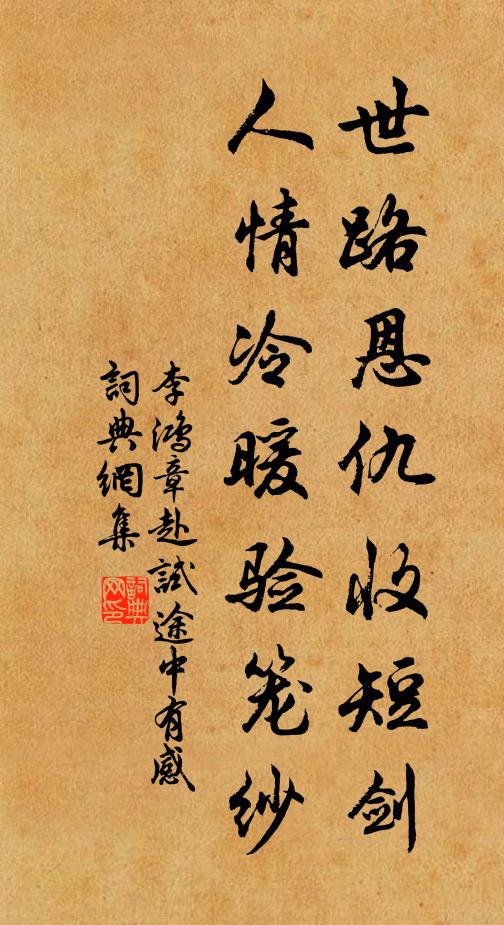 世路恩仇收短剑
人情冷暖验笼纱
李鸿章赴試途中有感
詞典網集
詞典网印